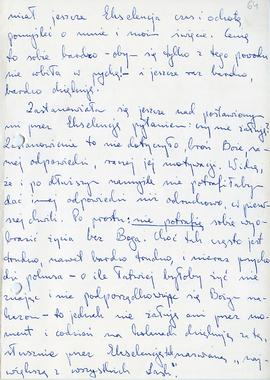 64
miał jeszcze Ekscelencja czas i ochotę
pomyśleć o mnie i moim święcie. Cenię
to sobie bardzo – oby się tylko z tego powodu
nie wbiła w pychę! – i jeszcze raz bardzo,
bardzo dziękuję.
Zastanawiałam się jeszcze nad postawionym
mi przez Ekscelencję pytaniem: czy nie żałuję?
Zastanowienie to nie dotyczyło, broń Boże, sa-
mej odpowiedzi, raczej jej motywacji. Widzę,
że i po dłuższym namyśle nie potrafiłaby
dać innej odpowiedzi niż odruchowo, w pierw-
szej chwili. Po prostu: nie potrafię sobie wyo-
brazić życia bez Boga. Choć tak często jest
trudno, nawet bardzo trudno, i nieraz przycho-
dzi pokusa – o ile łatwiej byłoby żyć nie
znając i nie podporządkowując się Bożym na-
kazom – to jednak nie żałuję ani przez mo-
ment i codzień na kolanach dziękuję za tę,
słusznie przez Ekscelencję nazwaną, "naj-
większą z wszystkich Łask".